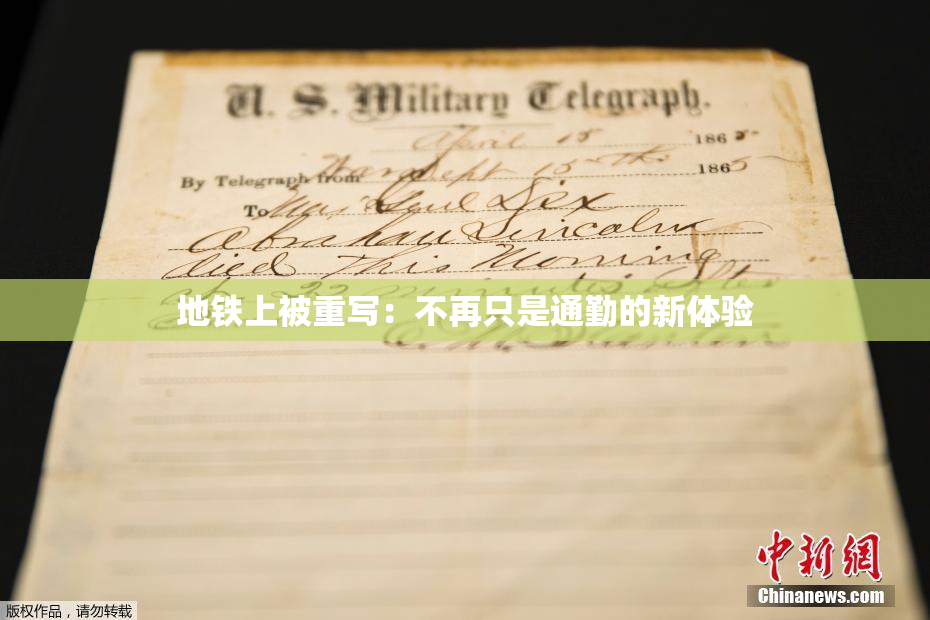 U. S. Military Telegraph.
April 15 1865
By Telegraph from War Dept 15th 1865
To Maj Genl Dix
Abraham Lincoln
died This Morning
at 22 minutes after
地铁上被重写：不再只是通勤的新体验
E. M. Stanton
中新网
Chinanews.com
版权作品，请勿转载